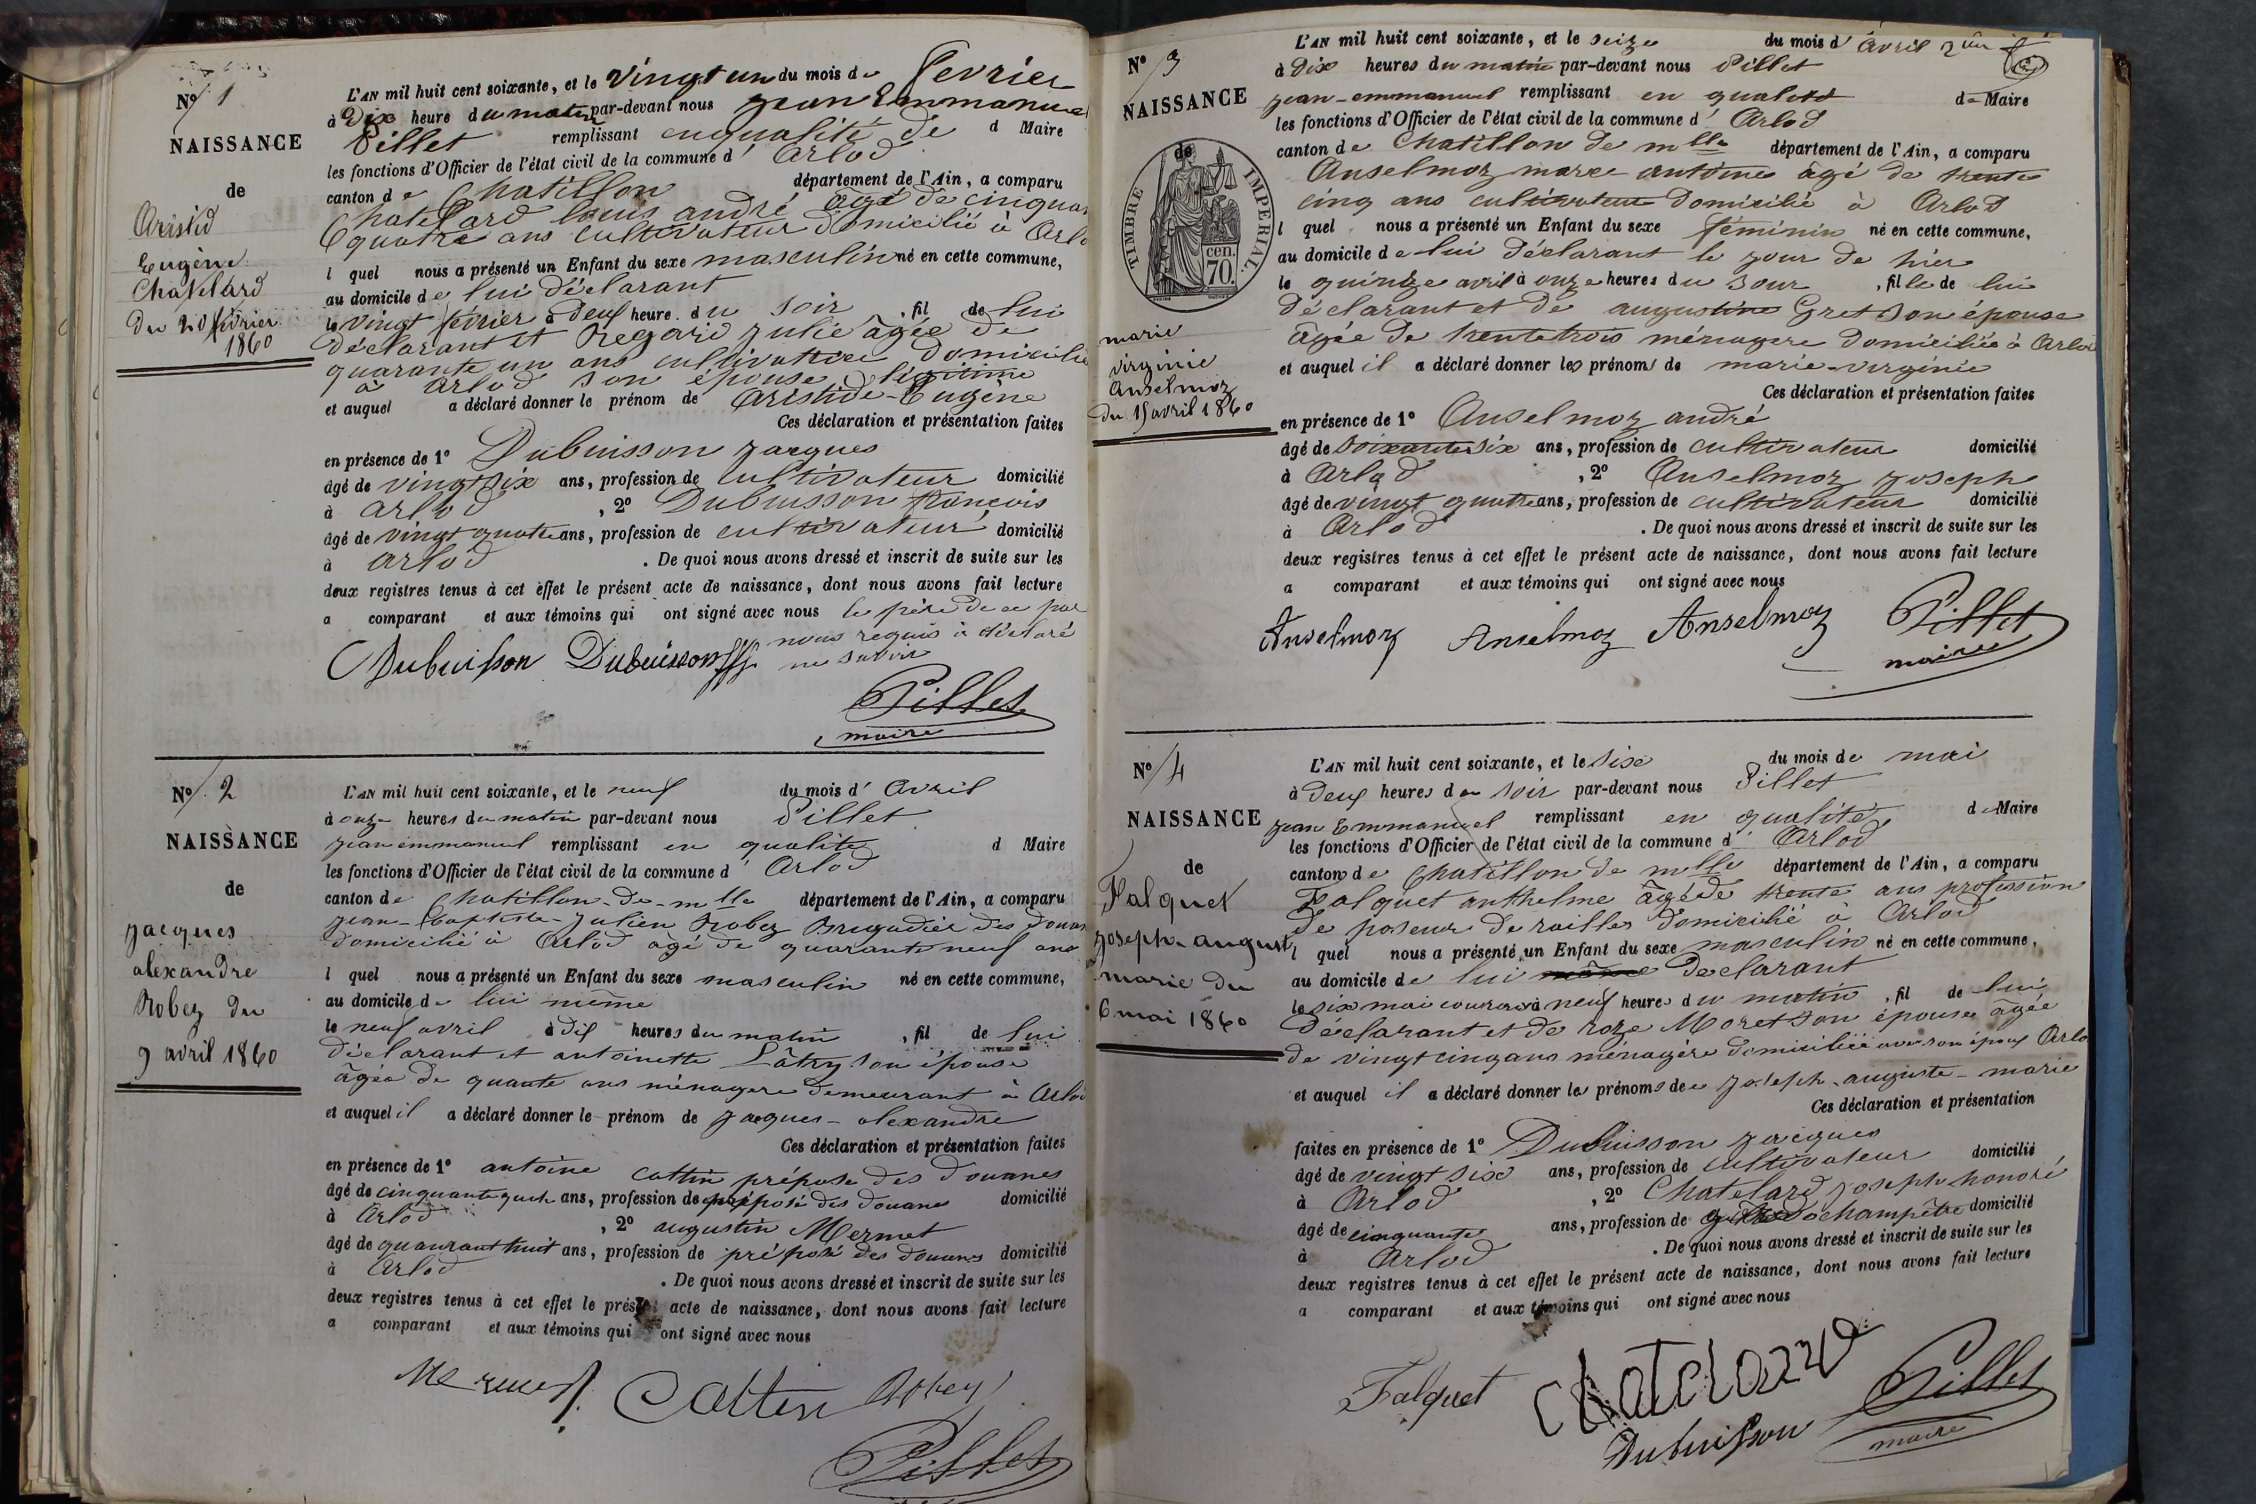 Nº 1
NAISSANCE
de
Aristid
Eugène
Chatelard
du 20 février
1860
L'AN mil huit cent soixante, et le vingt un du mois de fevrier
à Dix heure du matin par-devant nous jean Emmanuel
Pillet remplissant en qualité de d Maire
les fonctions d'Officier de l'état civil de la commune d' Arlod
canton de Chatillon département de l'Ain, a comparu
Chatelard louis andré âgé de cinquan
quatre ans cultivateur domicilié à Arlo
l quel nous a présenté un Enfant du sexe masculin né en cette commune,
au domicile de lui déclarant
le vingt février à deux heure du soir, fil de lui
déclarant et julie âgée de
quarante un ans cultivatrice domicilié
à Arlod son épouse légitime
et auquel a déclaré donner le prénom de Aristide-Eugène
Ces déclaration et présentation faites
en présence de 1º Dubuisson jacques
âgé de vingt six ans, profession de cultivateur domicilié
à arlod, 2º Dubuisson françois
âgé de vingt quatre ans, profession de cultivateur domicilié
à arlod. De quoi nous avons dressé et inscrit de suite sur les
deux registres tenus à cet effet le présent acte de naissance, dont nous avons fait lecture
a comparant et aux témoins qui ont signé avec nous le père de ce par
nous requis à déclaré
ne savoir
Dubuisson Dubuisson
Pillet
maire
Nº 2
NAISSANCE
de
jacques
alexandre
Robez du
9 avril 1860
L'AN mil huit cent soixante, et le neuf du mois d' Avril
à onze heures du matin par-devant nous Pillet
jean emmanuel remplissant en qualité d Maire
les fonctions d'Officier de l'état civil de la commune d' Arlod
canton de Chatillon-de-mlle département de l'Ain, a comparu
jean-Baptiste-julien Robez Brigadier des douan
domicilié à Arlod agé de quarante neuf ans
l quel nous a présenté un Enfant du sexe masculin né en cette commune,
au domicile de lui même
le neuf avril à dix heures du matin, fil de lui
déclarant et antoinette Lâtry son épouse
âgée de quante ans ménagere demeurant à Arlod
et auquel il a déclaré donner le prénom de jacques-alexandre
Ces déclaration et présentation faites
en présence de 1º antoine cattin prépose des douanes
âgé de cinquante ans, profession de préposé des douanes domicilié
à Arlod, 2º augustin Mermet
âgé de quaurant huit ans, profession de préposé des douanes domicilié
à Arlod. De quoi nous avons dressé et inscrit de suite sur les
deux registres tenus à cet effet le présent acte de naissance, dont nous avons fait lecture
a comparant et aux témoins qui ont signé avec nous
Mermet Cattin Robez
Pillet
Nº 3
NAISSANCE
de
TIMBRE IMPERIAL.
cen.
70.
marie
virginie
Anselmoz
du 15 avril 1860
L'AN mil huit cent soixante, et le seize du mois d' avril
à Dix heures du matin par-devant nous Pillet
jean-emmanuel remplissant en qualité de Maire
les fonctions d'Officier de l'état civil de la commune d' Arlod
canton de Chatillon de mlle département de l'Ain, a comparu
Anselmoz marce antoine âgé de trente
cinq ans cultivateur domicilié à Arlod
l quel nous a présenté un Enfant du sexe féminin né en cette commune,
au domicile de lui déclarant le jour de hier
le quinze avril à onze heures du sour, fille de lui
déclarant et de augustine Gret son épouse
âgée de trente trois ménagere domiciliée à Arlod
et auquel il a déclaré donner les prénoms de marie-virginie
Ces déclaration et présentation faites
en présence de 1º Anselmoz andré
âgé de soixante six ans, profession de cultivateur domicilié
à Arlod, 2º Anselmoz joseph
âgé de vingt quatre ans, profession de cultivateur domicilié
à Arlod. De quoi nous avons dressé et inscrit de suite sur les
deux registres tenus à cet effet le présent acte de naissance, dont nous avons fait lecture
a comparant et aux témoins qui ont signé avec nous
Anselmoz Anselmoz Anselmoz Pillet
maire
Nº 4
NAISSANCE
de
Falquet
joseph-august
marie du
6 mai 1860
L'AN mil huit cent soixante, et le six du mois de mai
à deux heures du soir par-devant nous Pillet
jean Emmanuel remplissant en qualité de Maire
les fonctions d'Officier de l'état civil de la commune d' Arlod
canton de Chatillon de mlle département de l'Ain, a comparu
Falquet anthelme âgé de trente ans profession
de poseur de railles domicilié à Arlod
l quel nous a présenté un Enfant du sexe masculin né en cette commune,
au domicile de lui même déclarant
le six mai courant à neuf heures du matin, fil de lui
déclarant et de roze Moret son épouse âgée
de vingt cinq ans ménagère domiciliée avec son époux Arlo
et auquel il a déclaré donner les prénoms de joseph-auguste-marie
Ces déclaration et présentation
faites en présence de 1º Dubuisson jacques
âgé de vingt six ans, profession de cultivateur domicilié
à Arlod, 2º Chatelard joseph honoré
âgé de cinquante ans, profession de garde champêtre domicilié
à Arlod. De quoi nous avons dressé et inscrit de suite sur les
deux registres tenus à cet effet le présent acte de naissance, dont nous avons fait lecture
a comparant et aux témoins qui ont signé avec nous
Falquet Chatelard Pillet
Dubuisson maire